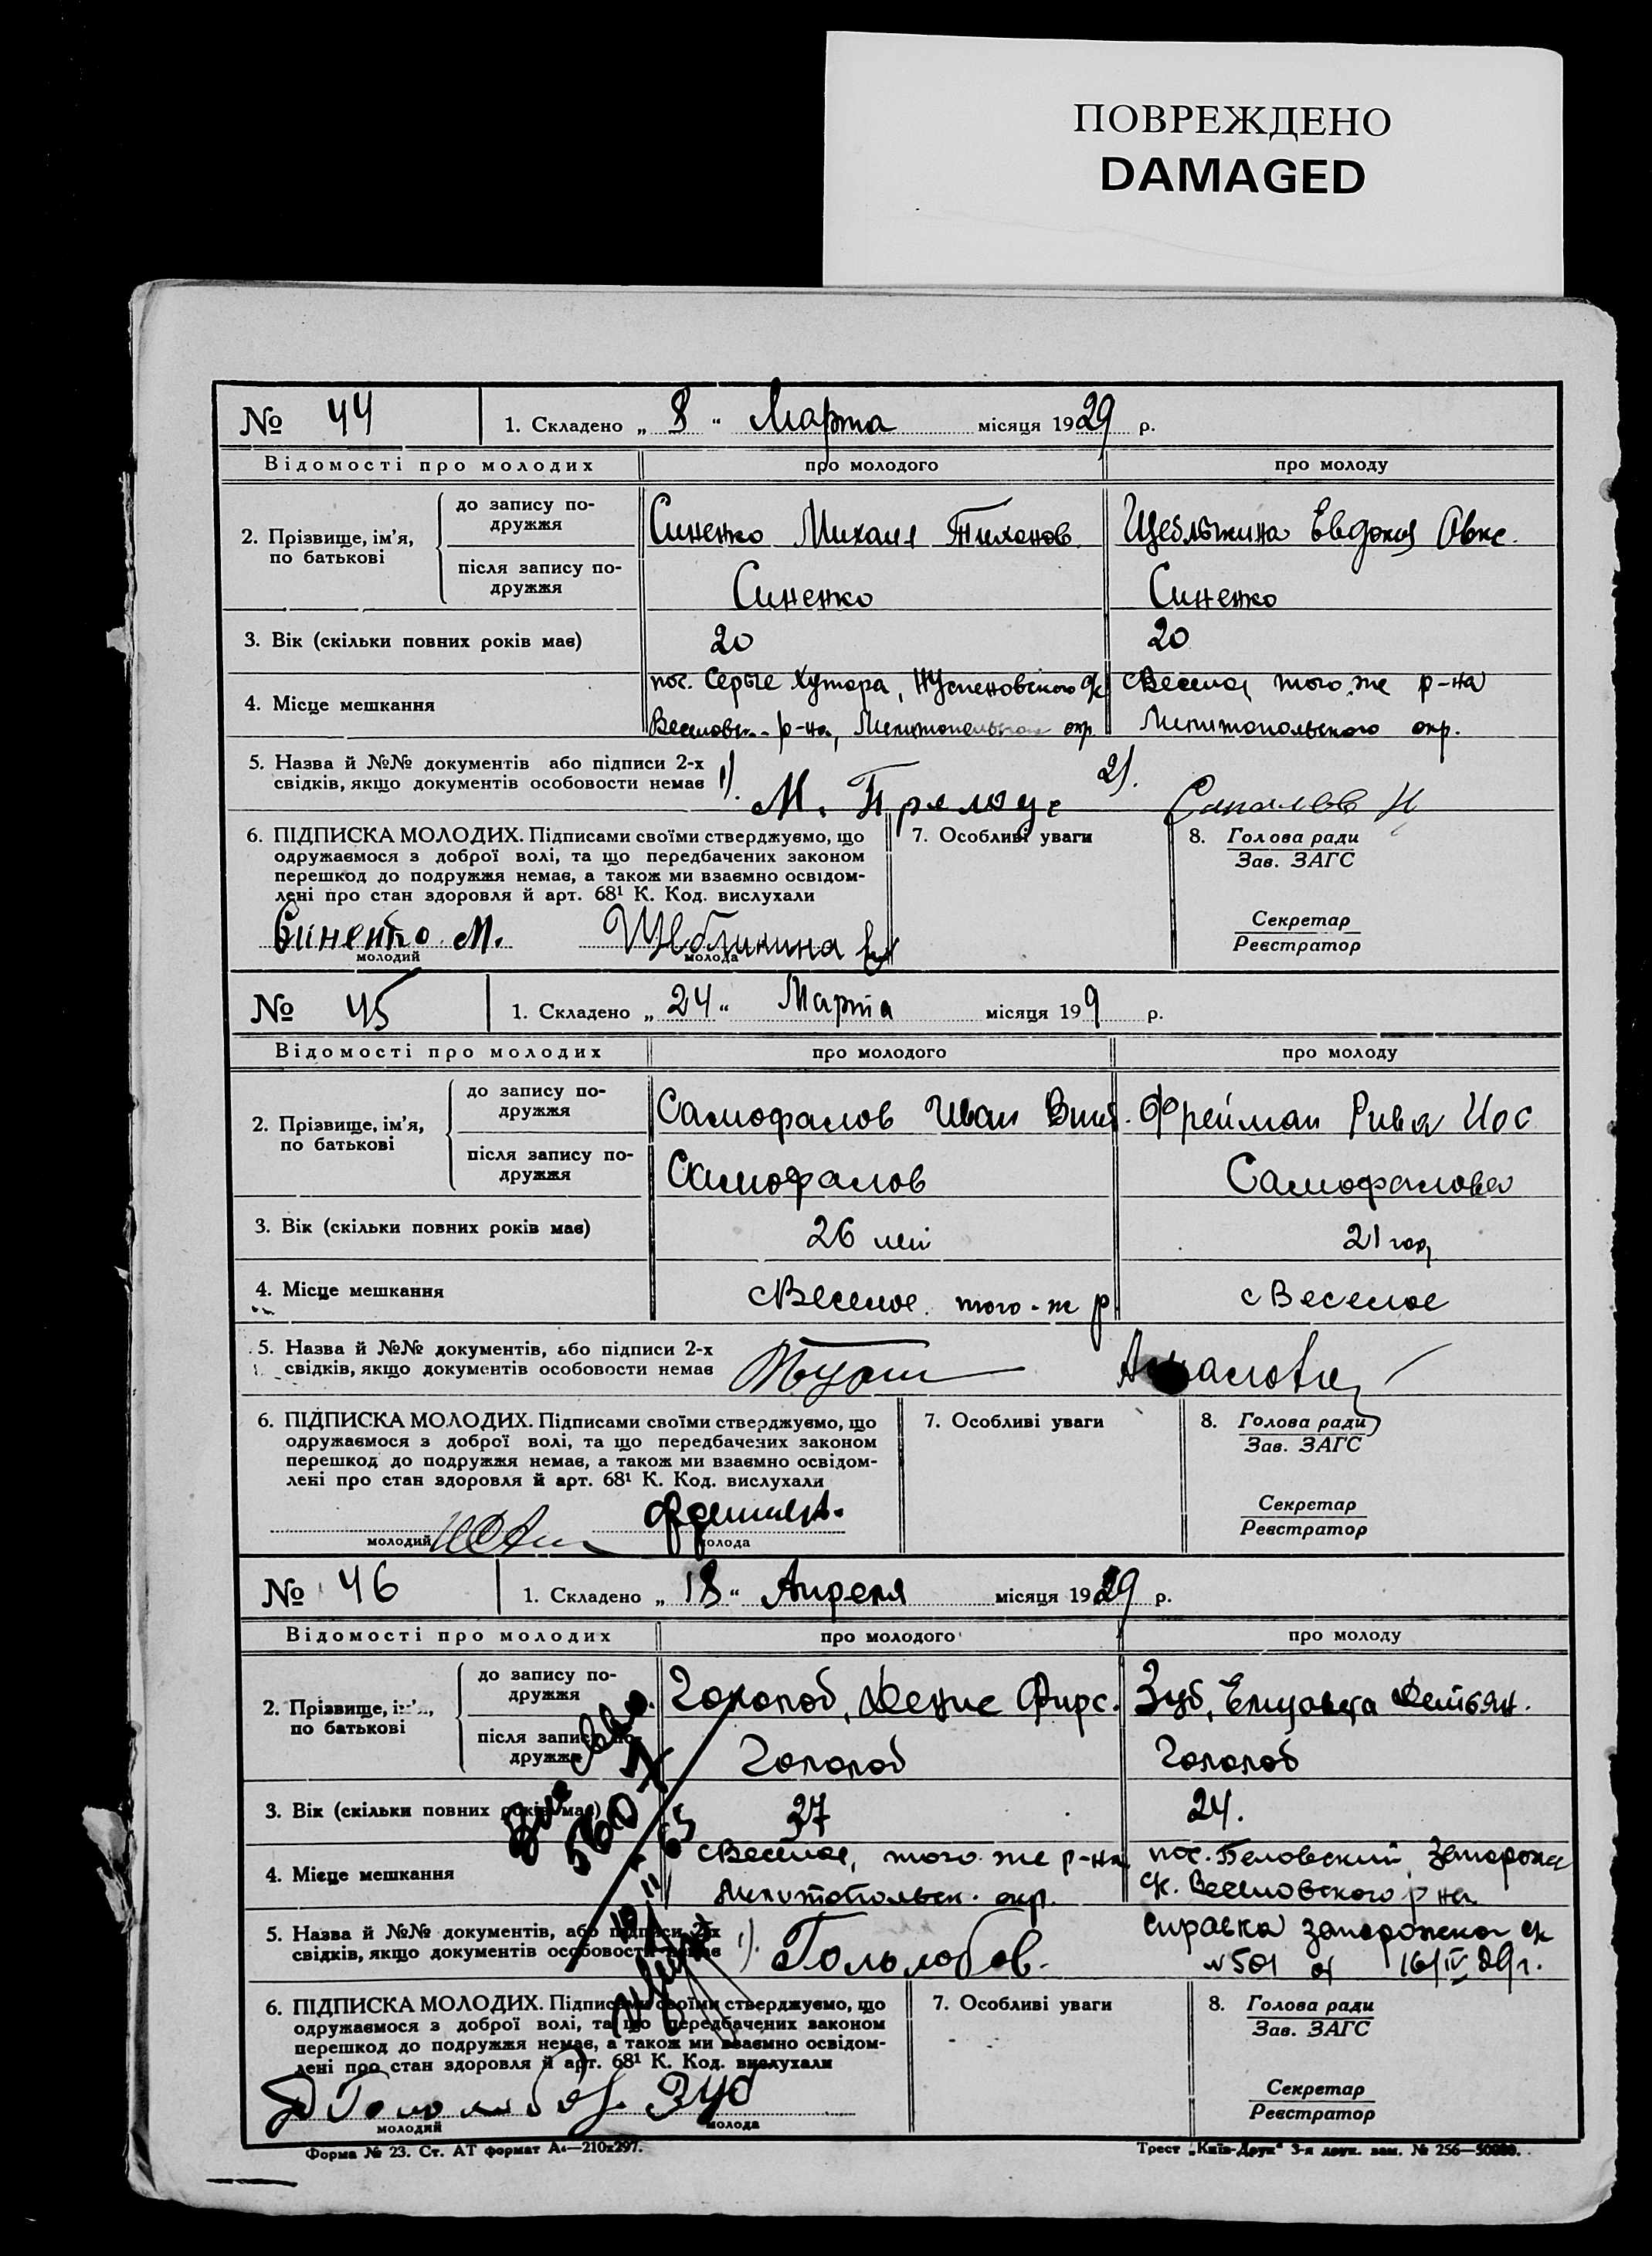 ПОВРЕЖДЕНО
DAMAGED
№ 44 1. Складено „ 8 “ Марта місяця 1929 р.
Відомості про молодих про молодого про молоду
2. Прізвище, ім’я, по батькові
до запису подружжя Синенко Михаил Тихонов. Щеблыкина Евдокия Авкс.
після запису подружжя Синенко Синенко
3. Вік (скільки повних років має) 20 20
4. Місце мешкання
пос. Серые Хутора, с Веселое, того же р-на
Веселовск. р-на, Мелитопольского окр. Мелитопольского окр.
5. Назва й №№ документів або підписи 2-х
свідків, якщо документів особовости немає 1). М. 2).
6. ПІДПИСКА МОЛОДИХ. Підписами своїми стверджуємо, що
одружаємося з доброї волі, та що передбачених законом
перешкод до подружжя немає, а також ми взаємно освідом-
лені про стан здоровля й арт. 68¹ К. Код. вислухали
Синенко М.
молодий молода
7. Особливі уваги
8. Голова ради
Зав. ЗАГС
Секретар
Реєстратор
№ 45 1. Складено „ 24 “ Марта місяця 199 р.
Відомості про молодих про молодого про молоду
2. Прізвище, ім’я, по батькові
до запису подружжя Самофалов Иван Фрейман Рива Иос
після запису подружжя Самофалов Самофалова
3. Вік (скільки повних років має) 26 лет 21 год
4. Місце мешкання с Веселое того-ж р с Веселое
5. Назва й №№ документів, або підписи 2-х
свідків, якщо документів особовости немає
6. ПІДПИСКА МОЛОДИХ. Підписами своїми стверджуємо, що
одружаємося з доброї волі, та що передбачених законом
перешкод до подружжя немає, а також ми взаємно освідом-
лені про стан здоровля й арт. 68¹ К. Код. вислухали
молодий молода
7. Особливі уваги
8. Голова ради
Зав. ЗАГС
Секретар
Реєстратор
№ 46 1. Складено „ 18 “ Апреля місяця 1929 р.
Відомості про молодих про молодого про молоду
2. Прізвище, ім’я, по батькові
до запису подружжя Гололоб, Денис Фирс. Зуб, Елизавета Демьян.
після запису подружжя Гололоб Гололоб
3. Вік (скільки повних років має) 27 24.
4. Місце мешкання
с Веселое, того же р-на пос. Беловский
Мелитопольск. окр. Веселовского р на
5. Назва й №№ документів, або підписи 2-х справка
свідків, якщо документів особовости немає 1). № 501 от 16/IV 29 г.
6. ПІДПИСКА МОЛОДИХ. Підписами своїми стверджуємо, що
одружаємося з доброї волі, та що передбачених законом
перешкод до подружжя немає, а також ми взаємно освідом-
лені про стан здоровля й арт. 68¹ К. Код. вислухали
Зуб
молодий молода
7. Особливі уваги
8. Голова ради
Зав. ЗАГС
Секретар
Реєстратор
Форма № 23. Ст. АТ формат А₄—210х297. Трест „Київ-Друк“ 3-я друк. зам. № 256—50000.